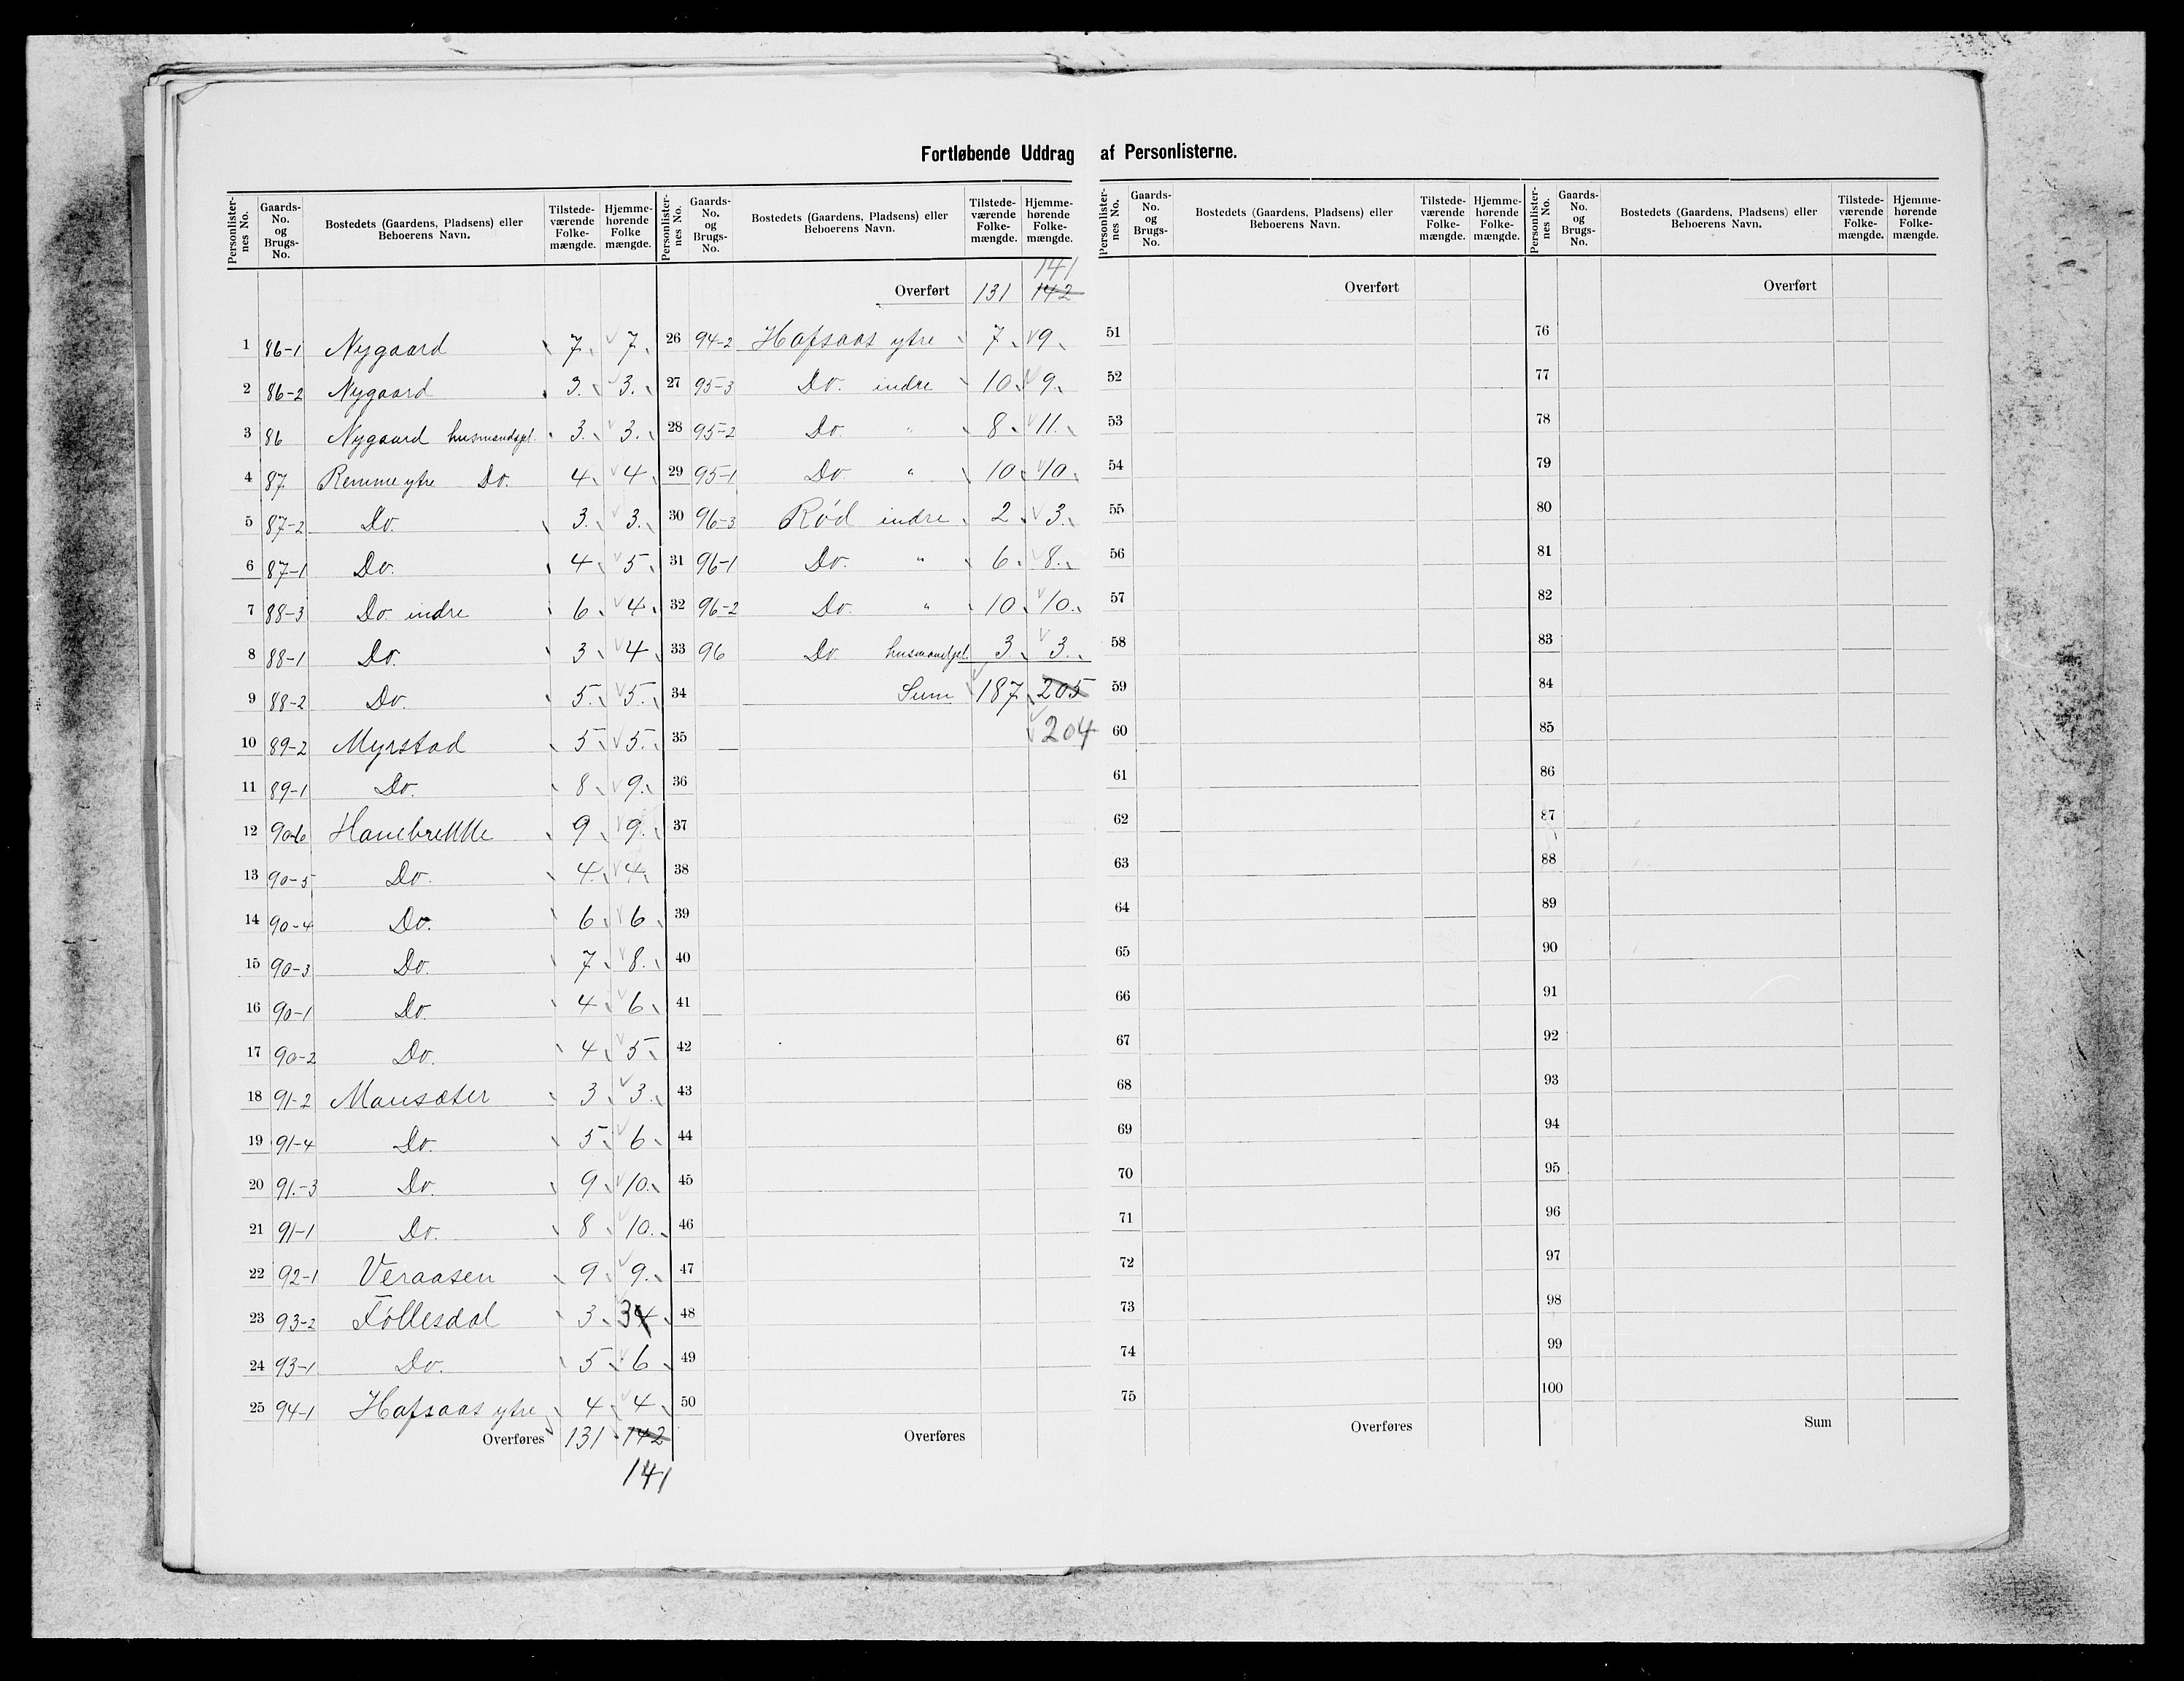 Fortløbende Uddrag af Personlisterne.
Personlister-nes No. | Gaards-No. og Brugs-No. | Bostedets (Gaardens, Pladsens) eller Beboerens Navn. | Tilstede-værende Folke-mængde. | Hjemme-hørende Folke mængde.
1 86-1 Nygaard 7 7
2 86-2 Nygaard 3. 3.
3 86 Nygaard husmandspl. 3. 3.
4 87 Remme ytre Do. 4 4
5 87-2 Do. 3. 3.
6 87-1 Do. 4 5
7 88-3 Do indre 6 4
8 88-1 Do. 3 4
9 88-2 Do. 5. 5.
10 89-2 Myrstad 5 5.
11 89-1 Do. 8 9.
12 90-6 Hanebrekke 9 9.
13 90-5 Do. 4. 4.
14 90-4 Do. 6 6
15 90-3 Do. 7 8.
16 90-1 Do. 4 6
17 90-2 Do. 4 5
18 91-2 Mansæter 3 3.
19 91-4 Do. 5 6
20 91.-3 Do. 9 10.
21 91-1 Do. 8 10.
22 92-1 Veraasen 9 9.
23 93-2 Føllesdal 3 3 4
24 93-1 Do. 5 6
25 94-1 Hafsaas ytre 4 4
Overføres 131 142
141
Personlister-nes No. | Gaards-No. og Brugs-No. | Bostedets (Gaardens, Pladsens) eller Beboerens Navn. | Tilstede-værende Folke-mængde. | Hjemme-hørende Folke-mængde.
141
Overført 131 142
26 94-2 Hafsaas ytre 7 9
27 95-3 Do. indre 10 9.
28 95-2 Do. " 8 11.
29 95-1 Do. " 10 10
30 96-3 Rød indre 2 3.
31 96-1 Do. " 6 8.
32 96-2 Do. " 10 10.
33 96 Do husmandspl. 3 3.
34 Sum 187 205
35 204
36
37
38
39
40
41
42
43
44
45
46
47
48
49
50
Overføres
Personlister-nes No. | Gaards-No. og Brugs-No. | Bostedets (Gaardens, Pladsens) eller Beboerens Navn. | Tilstede-værende Folke-mængde. | Hjemme-hørende Folke-mængde.
Overført
51
52
53
54
55
56
57
58
59
60
61
62
63
64
65
66
67
68
69
70
71
72
73
74
75
Overføres
Personlister-nes No. | Gaards-No. og Brugs-No. | Bostedets (Gaardens, Pladsens) eller Beboerens Navn. | Tilstede-værende Folke-mængde. | Hjemme-hørende Folke-mængde.
Overført
76
77
78
79
80
81
82
83
84
85
86
87
88
89
90
91
92
93
94
95
96
97
98
99
100
Sum